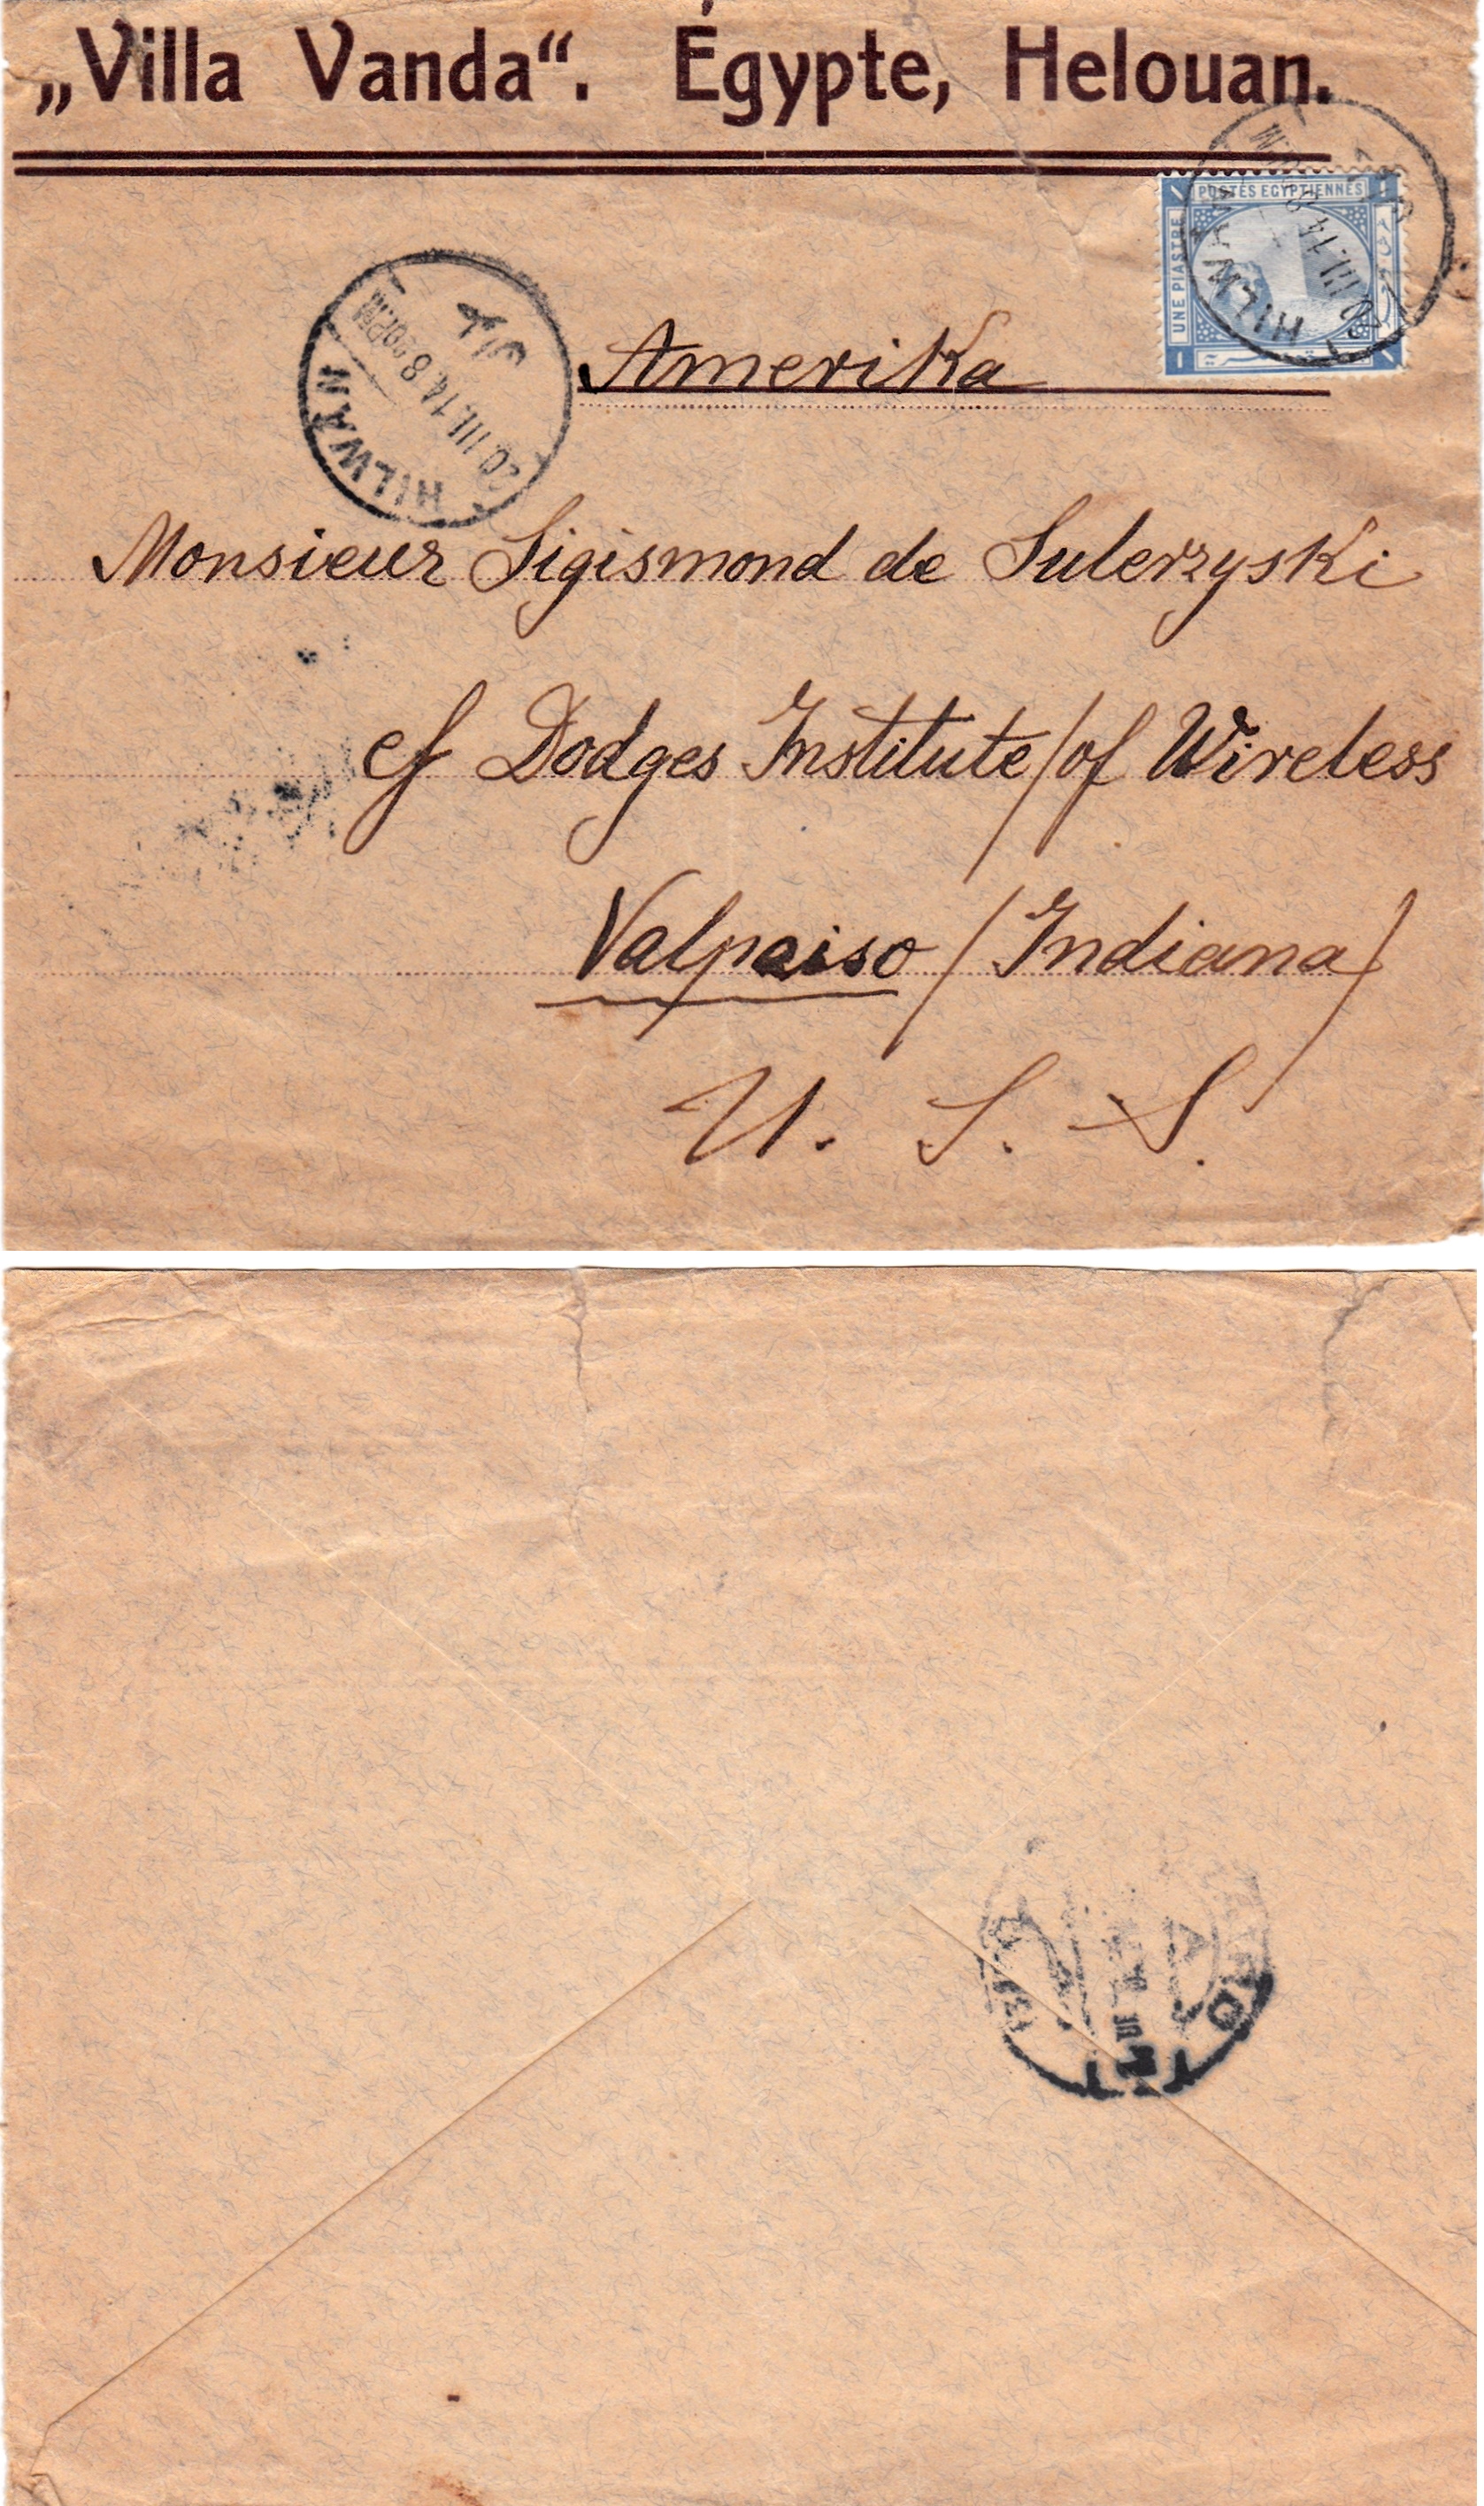 „Villa Vanda“. Égypte, Helouan.
POSTES EGYPTIENNES
UNE PIASTRE
1
HILWAN
20.III.14
حلوان
20.III.14.8 30PM
HILWAN
Amerika
Monsieur Sigismond de Sulerzyski
ef Dodges Institute/of Wireless
Valpaiso/Indiana/
U. S. S.